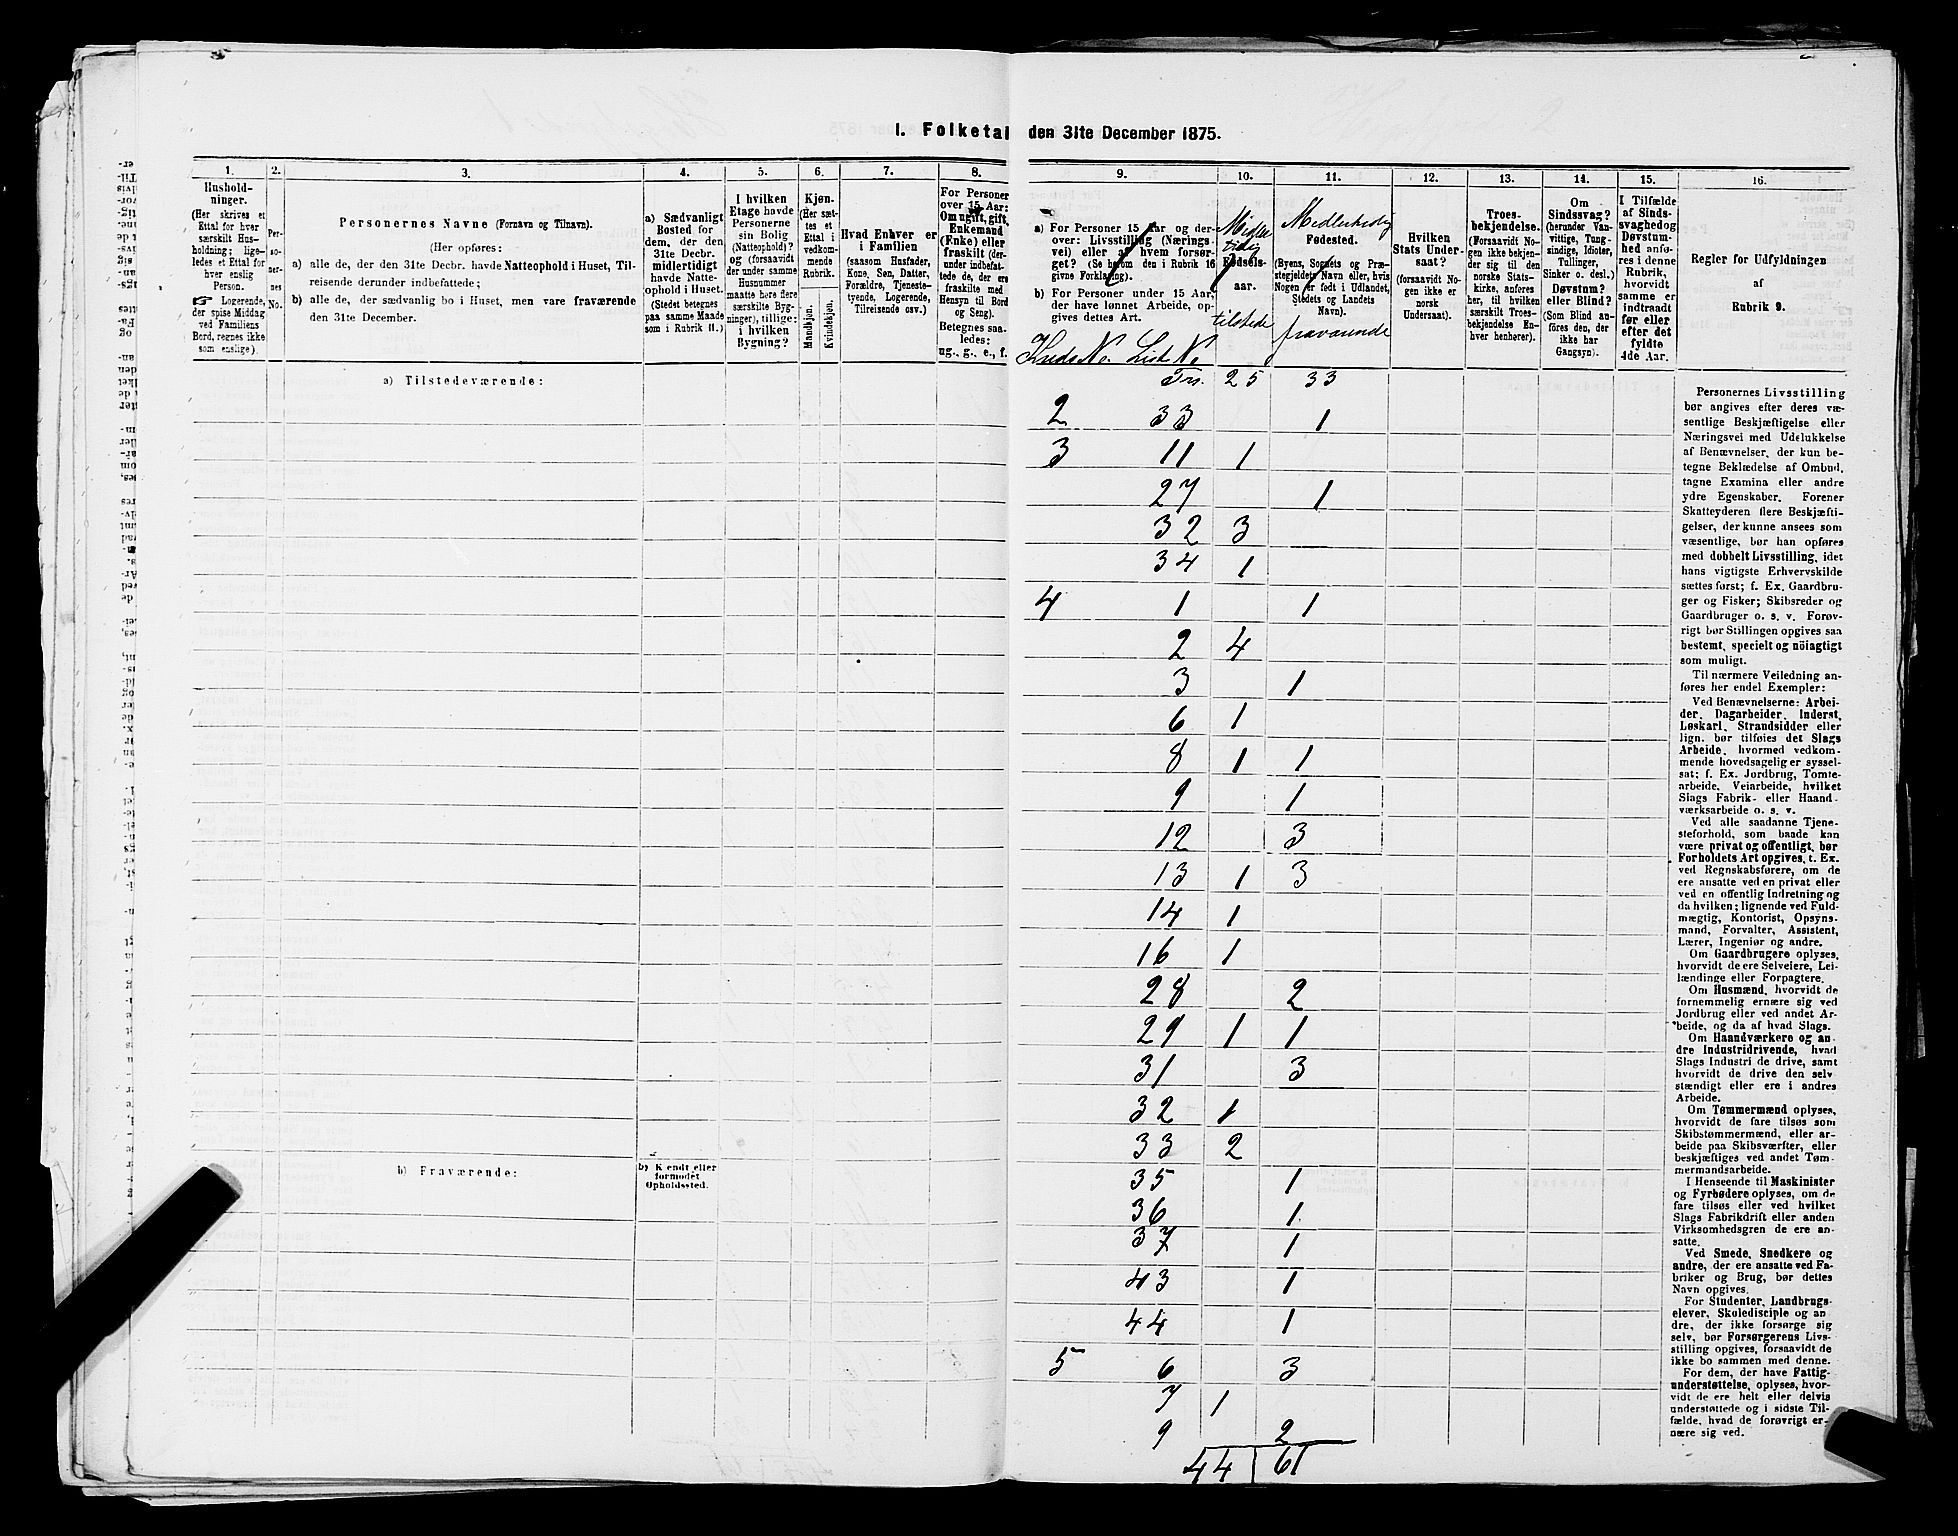 I. Folketal den 31te December 1875.
1. 2. 3. 4. 5. 6. 7. 8. 9. 10. 11. 12. 13. 14. 15. 16.
Hushold-
ninger.
(Her skrives et
Ettal for hver
særskilt Hus-
holdning; lige-
ledes et Ettal for
hver enslig
Person.
☞ Logerende,
der spise Middag
ved Familiens
Bord, regnes ikke
som enslige).
Per-
so-
ner-
nes
No.
Personernes Navne (Fornavn og Tilnavn).
(Her opføres:
a) alle de, der den 31te Decbr. havde Natteophold i Huset, Til-
reisende derunder indbefattede;
b) alle de, der sædvanlig bo i Huset, men vare fraværende
den 31te December.
a) Sædvanligt
Bosted for
dem, der den
31te Decbr.
midlertidigt
havde Natte-
ophold i Huset.
(Stedet betegnes
paa samme Maade
som i Rubrik 11.)
I hvilken
Etage havde
Personerne
sin Bolig
(Natteophold)?
og (forsaavidt
der under samme
Husnummer
maatte høre flere
særskilte Byg-
ninger), tillige:
i hvilken
Bygning?
Kjøn.
(Her sæt-
tes et
Ettal i
vedkom-
mende
Rubrik.
Mandkjøn.
Kvindekjøn.
Hvad Enhver er
i Familien
(saasom Husfader,
Kone, Søn, Datter,
Forældre, Tjeneste-
tyende, Logerende,
Tilreisende osv.)
For Personer
over 15 Aar:
Om ugift, gift,
Enkemand
(Enke) eller
fraskilt (der-
under indbefat-
tede de, der ere
fraskilte med
Hensyn til Bord
og Seng).
Betegnes saa-
ledes:
ug., g., e., f.
a) For Personer 15 Aar og der-
over: Livsstilling (Nærings-
vei) eller af hvem forsør-
get? (Se herom den i Rubrik 16
givne Forklaring).
b) For Personer under 15 Aar,
der have lønnet Arbeide, op-
gives dettes Art.
Kreds No. List No.
Midler
tidig
Fødsels-
aar.
tilstede
Midlertidig
Fødested.
(Byens, Sognets og Præ-
stegjeldets Navn eller, hvis
Nogen er født i Udlandet,
Stedets og Landets
Navn).
fraværende
Hvilken
Stats Under-
saat?
(forsaavidt No-
gen ikke er
norsk
Undersaat).
Troes-
bekjendelse.
(Forsaavidt No-
gen ikke bekjen-
der sig til den
norske Stats-
kirke, anføres
her, til hvilken
særskilt Troes-
bekjendelse En-
hver henhører).
Om
Sindssvag?
(herunder Van-
vittige, Tung-
sindige, Idioter,
Tullinger,
Sinker o. desl.)
Døvstum?
eller Blind?
(Som Blind an-
føres den, der
ikke har
Gangsyn).
I Tilfælde
af Sinds-
svaghed og
Døvstum-
hed anfø-
res i denne
Rubrik,
hvorvidt
samme er
indtraadt
før eller
efter det
fyldte
4de Aar.
Regler for Udfyldningen
af
Rubrik 9.
a) Tilstedeværende:
Tr. 25 33
2 33 1
3 11 1
27 1
32 3
34 1
4 1 1
2 4
3 1
6 1
8 1 1
9 1
12 3
13 1 3
14 1
16 1
28 2
29 1 1
31 3
32 1
33 2
b) Fraværende:
b) Kjendt eller
formodet
Opholdssted.
35 1
36 1
37 1
43 1
44 1
5 6 3
7 1
9 2
44 61
Personernes Livsstilling
bør angives efter deres væ-
sentlige Beskjæftigelse eller
Næringsvei med Udelukkelse
af Benævnelser, der kun be-
tegne Beklædelse af Ombud,
tagne Examina eller andre
ydre Egenskaber. Forener
Skatteyderen flere Beskjæfti-
gelser, der kunne ansees som
væsentlige, bør han opføres
med dobbelt Livsstilling, idet
hans vigtigste Erhvervskilde
sættes først; f. Ex. Gaardbru-
ger og Fisker; Skibsreder og
Gaardbruger o. s. v. Forøv-
rigt bør Stillingen opgives saa
bestemt, specielt og nøiagtigt
som muligt.
Til nærmere Veiledning an-
føres her endel Exempler:
Ved Benævnelserne: Arbei-
der, Dagarbeider, Inderst,
Løskarl, Strandsidder eller
lign. bør tilføies det Slags
Arbeide, hvormed vedkom-
mende hovedsagelig er syssel-
sat; f. Ex. Jordbrug, Tomte-
arbeide, Veiarbeide, hvilket
Slags Fabrik- eller Haand-
værksarbeide o. s. v.
Ved alle saadanne Tjene-
steforhold, som baade kan
være privat og offentligt, bør
Forholdets Art opgives, t. Ex.
ved Regnskabsførere, om de
ere ansatte ved en privat eller
ved en offentlig Indretning og
da hvilken; lignende ved Fuld-
mægtig, Kontorist, Opsyns-
mand, Forvalter, Assistent,
Lærer, Ingeniør og andre.
Om Gaardbrugere oplyses,
hvorvidt de ere Selveiere, Lei-
lændinge eller Forpagtere.
Om Husmænd, hvorvidt de
fornemmelig ernære sig ved
Jordbrug eller ved andet Ar-
beide, og da af hvad Slags.
Om Haandværkere og an-
dre Industridrivende, hvad
Slags Industri de drive, samt
hvorvidt de drive den selv-
stændigt eller ere i andres
Arbeide.
Om Tømmermænd oplyses,
hvorvidt de fare tilsøs som
Skibstømmermænd, eller ar-
beide paa Skibsværfter, eller
beskjæftiges ved andet Tøm-
mermandsarbeide.
I Henseende til Maskinister
og Fyrbødere oplyses, om de
fare tilsøs eller ved hvilket
Slags Fabrikdrift eller anden
Virksomhedsgren de ere an-
satte.
Ved Smede, Snedkere og
andre, der ere ansatte ved Fa-
briker og Brug, bør dettes
Navn opgives.
For Studenter, Landbrugs-
elever, Skoledisciple og an-
dre, der ikke forsørge sig
selv, bør Forsørgerens Livs-
stilling opgives, forsaavidt de
ikke bo sammen med denne.
For dem, der have Fattig-
understøttelse, oplyses, hvor-
vidt de ere helt eller delvis
understøttede og i sidste Til-
fælde, hvad de forøvrigt er-
nære sig ved.